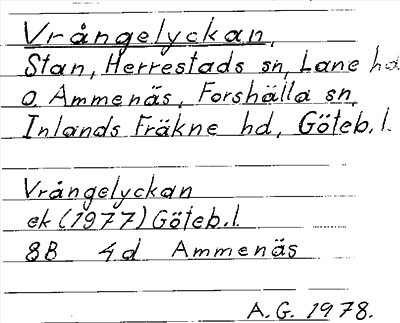 Vrångelyckan,
Stan, Herrestads sn, Lane hd
o. Ammenäs, Forshälla sn,
Inlands Fräkne hd, Göteb. l.
Vrångelyckan
ek (1977) Göteb. l.
8B 4d Ammenäs
A.G. 1978.